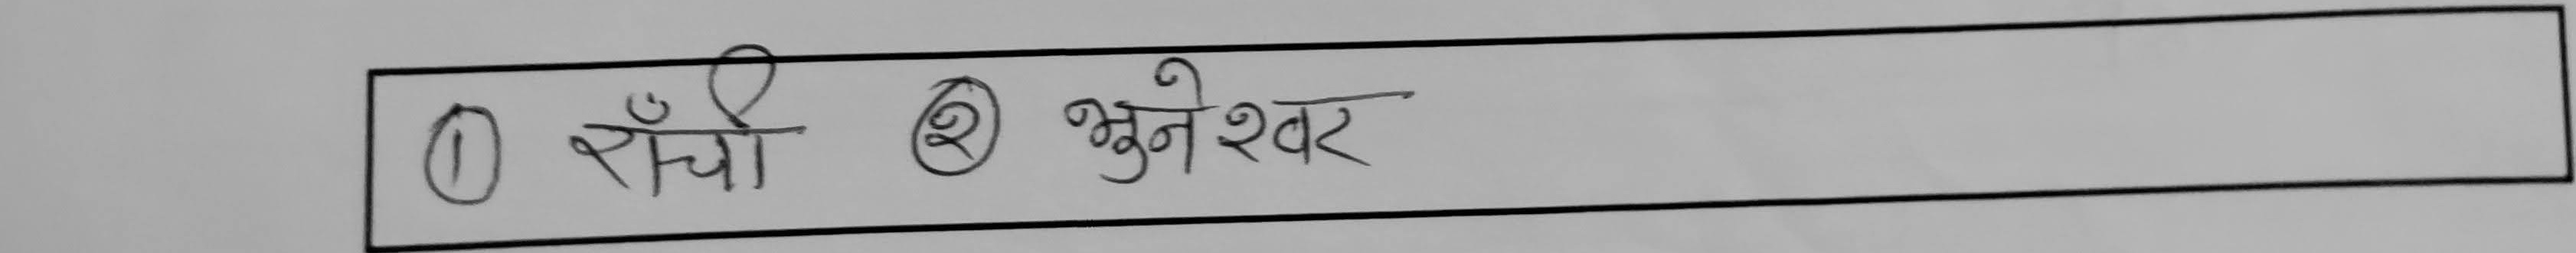 ① राँची ② भुनेश्वर